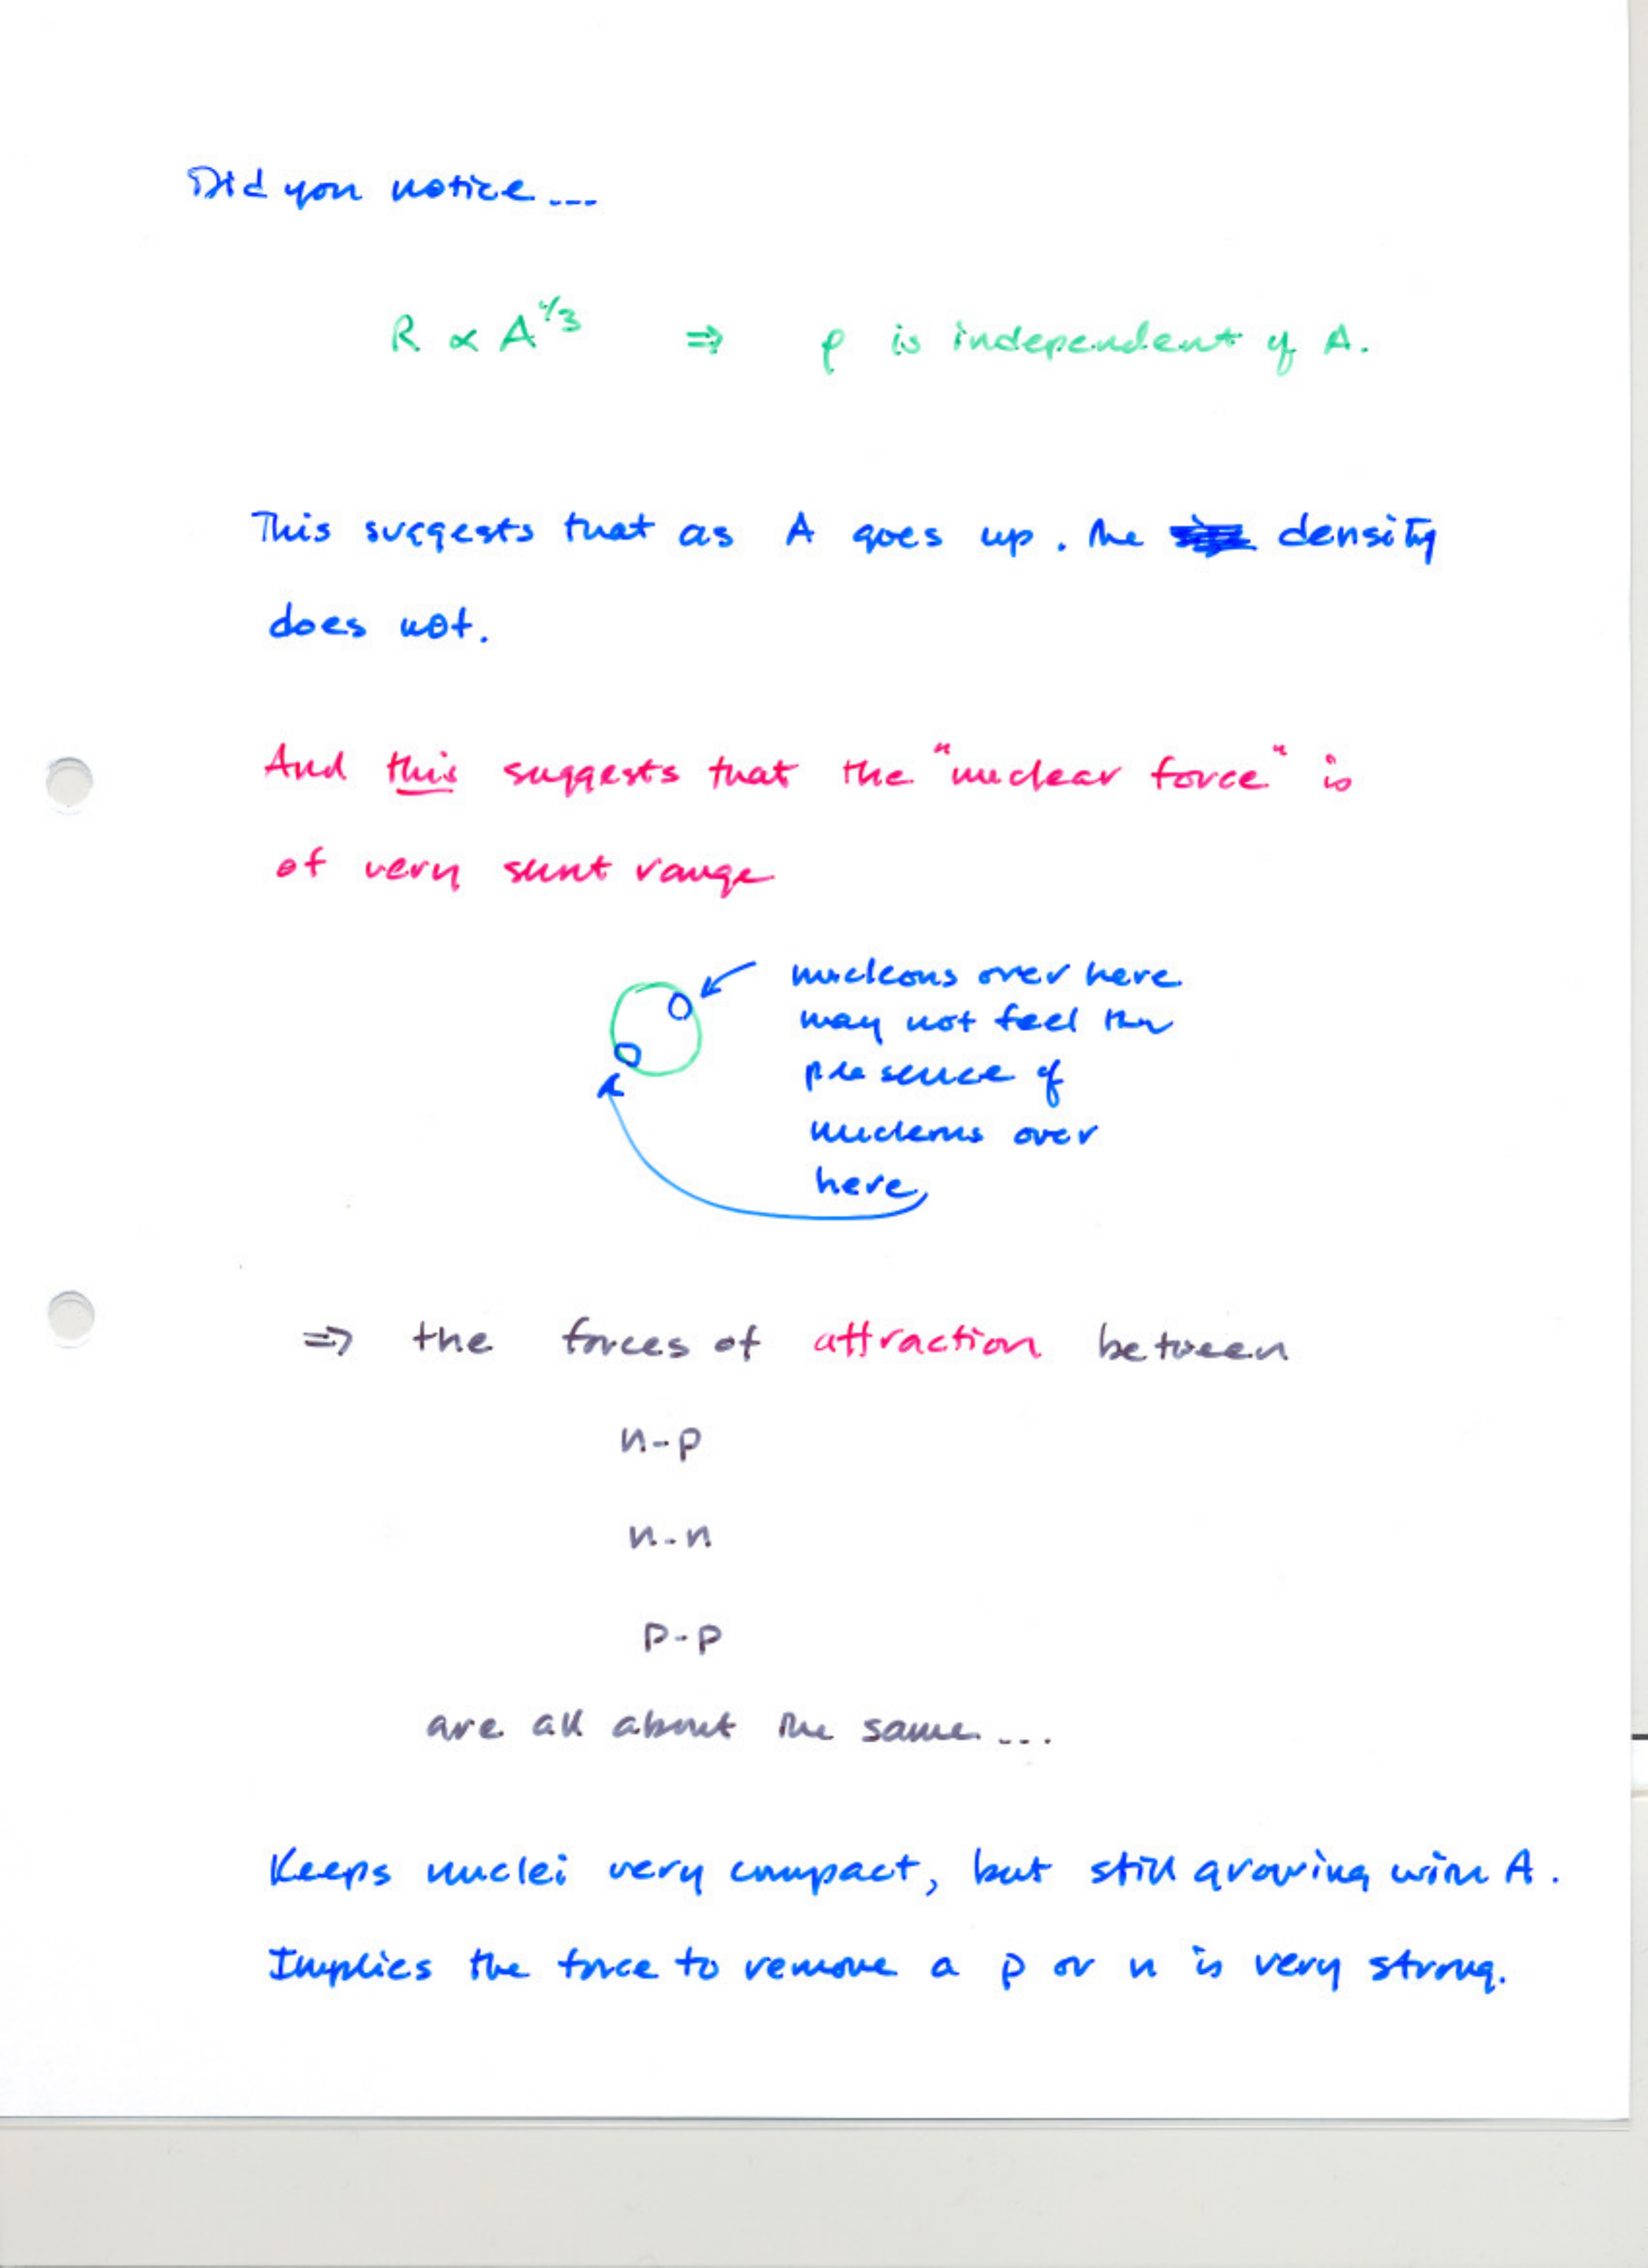 Did you notice ...
R ∝ A^1/3 ⇒ ρ is independent of A.
This suggests that as A goes up. the density
does not.
And this suggests that the "nuclear force" is
of very short range
nucleons over here
may not feel the
presence of
nucleons over
here
⇒ the forces of attraction between
n-p
n-n
p-p
are all about the same ...
Keeps nuclei very compact, but still growing with A.
Implies the force to remove a p or n is very strong.